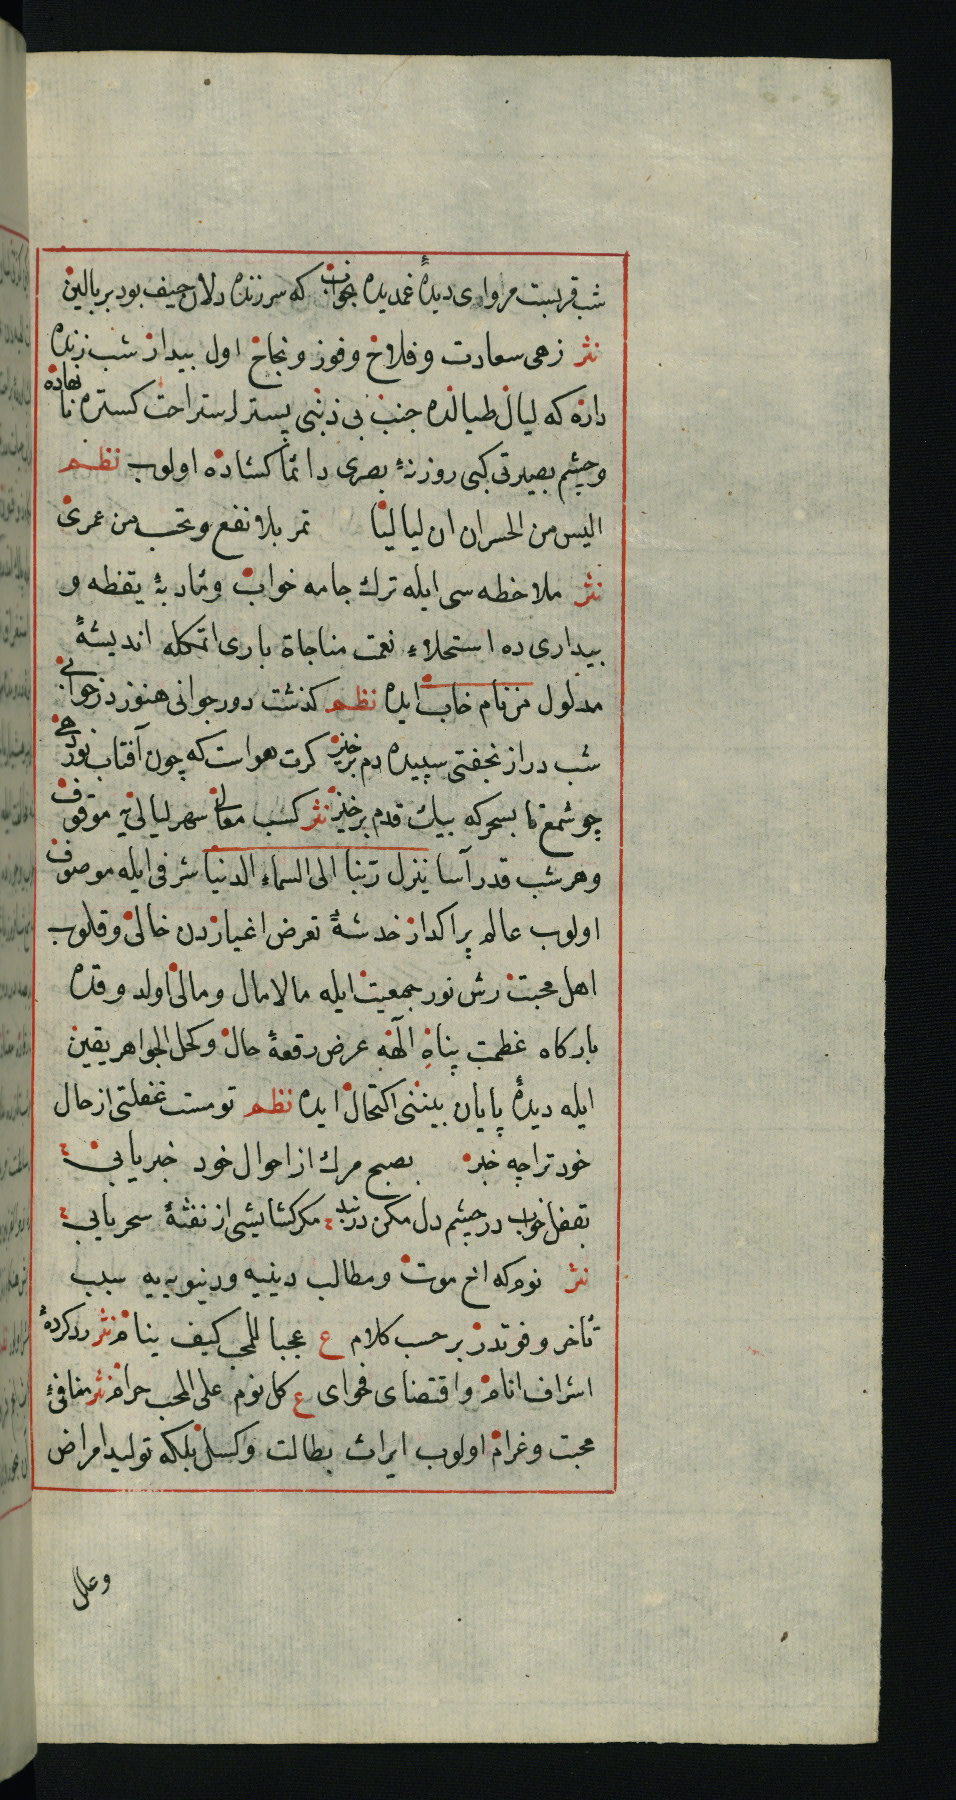 شب قربست مرو ای دیدهٔ غمدیده بخواب که سر زنده دلان حیف بود بر بالین
نثر زهی سعادت و فلاح و فوز و نجاح اول بیدار شب زنده
داره که لیال طیالده جنب بی ذنبی بستر استراحت کستره نا نهاده
و چشم بصیرتی کبی روزنهٔ بصری دائما کشاده اولوب نظم
الیس من الخسران ان لیالینا تمر بلا نفع و تحسب من عمری
نثر ملاحظه سی ایله ترك جامه خواب و مأدبهٔ یقظه و
بیداری ده استحلاء نعمت مناجاة باری اتمكله اندیشهٔ
مدلول من نام خاب ایده نظم کذشت دور جوانی هنوز در خوابی
شب دراز نخفتی سپیده دم برخیز کرت هواست که چون آفتاب نور دهی
چو شمع تا بسحرکه بیك قدم برخیز نثر کسب معالی سهر لیالی یه موقوف
و هر شب قدر آسا ینزل ربنا الی السماء الدنیا شرفی ایله موصوف
اولوب عالم پر اکدار خدشهٔ تعرض اغیاردن خالی و قلوب
اهل محبت رش نور جمعیت ایله مالامال و مالی اولدوقده
بارکاه عظمت پناه الٓهه عرض رقعهٔ حال و کحل الجواهر یقین
ایله دیدهٔ پایان بیننی اکتحال ایده نظم تو مست غفلتی از حال
خود ترا چه خبر بصبح مرك از احوال خود خبر یابی
بقفل خواب در چشم دل مکن در بند مکر کشایشی از نفثهٔ سحر یابی
نثر نوم که اخ موت و مطالب دینیه و دنیویه یه سبب
تأخر و فوتدر بر حسب کلام ع عجبا للمحب کیف ینام نثر رد کردهٔ
اشراف انام و اقتضای فحوای ع کل نوم علی المحب حرام نثر منافیٔ
محبت و غرام اولوب ایراث بطالت و کسل بلکه تولید امراض
و علل